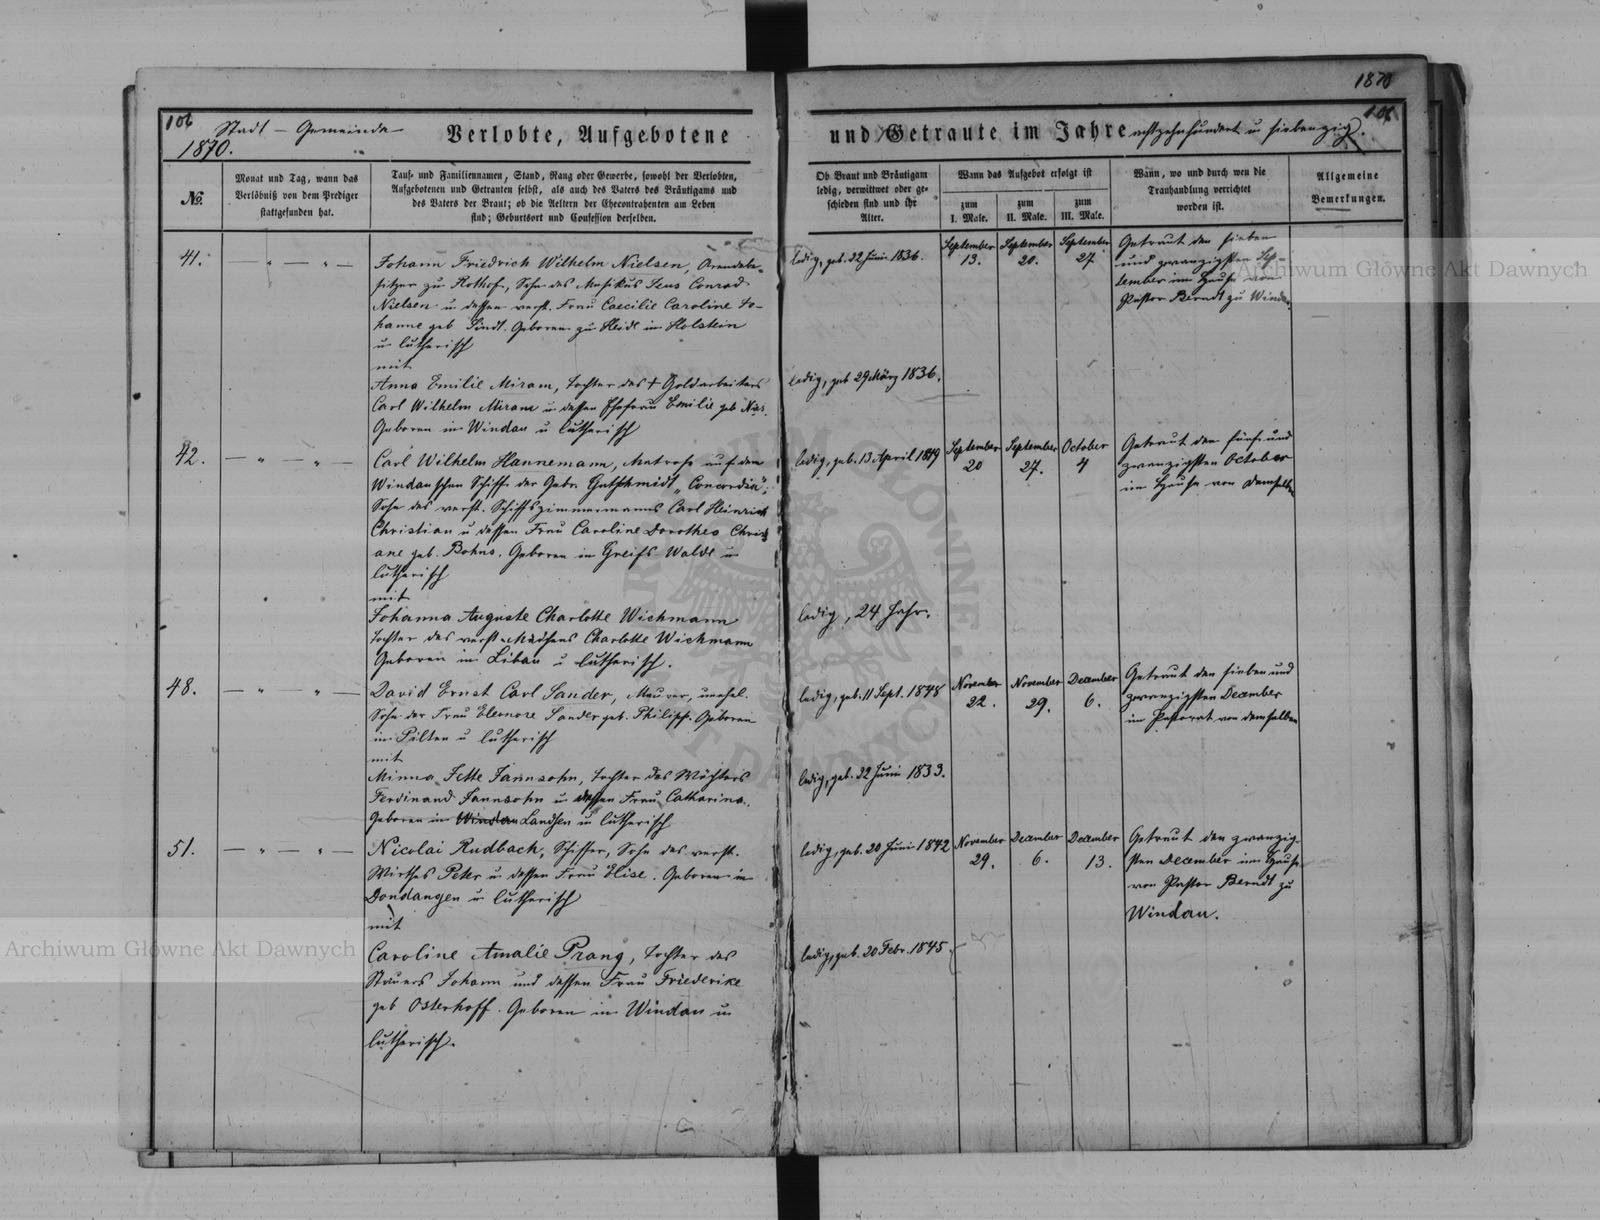 1870
106
106
Stadt - Gemeinde
1870.
Verlobte, Aufgebotene
und Getraute im Jahre achtzehnhundert u siebenzig.
No.
Monat und Tag, wann das
Verlöbniß von dem Prediger
stattgefunden hat.
Tauf- und Familiennamen, Stand, Rang oder Gewerbe, sowohl der Verlobten,
Aufgebotenen und Getrauten selbst, als auch des Vaters des Bräutigams und
des Vaters der Braut; ob die Aeltern der Ehecontrahenten am Leben
sind; Geburtsort und Confession derselben.
Ob Braut und Bräutigam
ledig, verwittwet oder ge-
schieden sind und ihr
Alter.
Wann das Aufgebot erfolgt ist
zum
I. Male.
zum
II. Male.
zum
III. Male.
Wann, wo und durch wen die
Trauhandlung verrichtet
worden ist.
Allgemeine
Bemerkungen.
41.
— " — " —
Johann Friedrich Wilhelm Nielsen, Arendebe-
sitzer zu Rothof, Sohn des Musikus Jens Conrad
Nielsen u dessen verst. Frau Caecilie Caroline Jo-
hanne geb Lindt. Geboren zu Heide in Holstein
u lutherisch
mit
Anna Emilie Miram, Tochter des † Goldarbeiters
Carl Wilhelm Miram u dessen Ehefrau Emilie geb
Geboren in Windau u lutherisch
ledig, geb. 22 Juni 1836.
ledig, geb 29 März 1836.
September
13.
September
20.
September
27
Getraut den sieben
und zwanzigsten Sep-
tember im Hause von
Pastor Berndt zu Windau
42.
— " — " —
Carl Wilhelm Hannemann, Matrose auf dem
Windauschen Schiffe der Gebr. Gutschmidt „Concordia";
Sohn des verst. Schiffszimmermanns Carl Heinrich
Christian u dessen Frau Caroline Dorothea Christi
ane geb. Bohns. Geboren in Greifs-Walde u
lutherisch
mit
Johanna Auguste Charlotte Wichmann
Tochter des verst. Charlotte Wichmann
Geboren in Libau u lutherisch.
ledig, geb. 13 April 1849
ledig, 24 Jahr.
September
20
September
27.
October
4
Getraut den fünf und
zwanzigsten October
im Hause von demselben
48.
— " — " —
David Ernst Carl Sander, Maurer, unehel.
Sohn der Frau Eleonore Sander geb. Philipp. Geboren
in Pilten u lutherisch
mit
Minna Jette Jannsohn, Tochter des Wächters
Ferdinand Jannsohn u dessen Frau Catharina.
Geboren in Windau Landsen u lutherisch
ledig, geb. 11 Sept. 1848
ledig, geb. 22 Juni 1833.
November
22.
November
29.
December
6.
Getraut den sieben und
zwanzigsten December
im Pastorat von demselben
51.
— " — " —
Nicolai Rudbach, Schiffer, Sohn des verst.
Wirthes Peter u dessen Frau Elise. Geboren in
Dondangen u lutherisch
mit
Caroline Amalie Prang, Tochter des
Stauers Johann und dessen Frau Friederike
geb Osterhoff. Geboren in Windau u
lutherisch.
ledig, geb. 20 Juni 1842
ledig, geb. 20 Febr. 1845.
November
29.
December
6.
December
13.
Getraut den zwanzig-
sten December im Hause
von Pastor Berndt zu
Windau.
Archiwum Główne Akt Dawnych
Archiwum Główne Akt Dawnych
ARCHIWUM GŁÓWNE AKT DAWNYCH